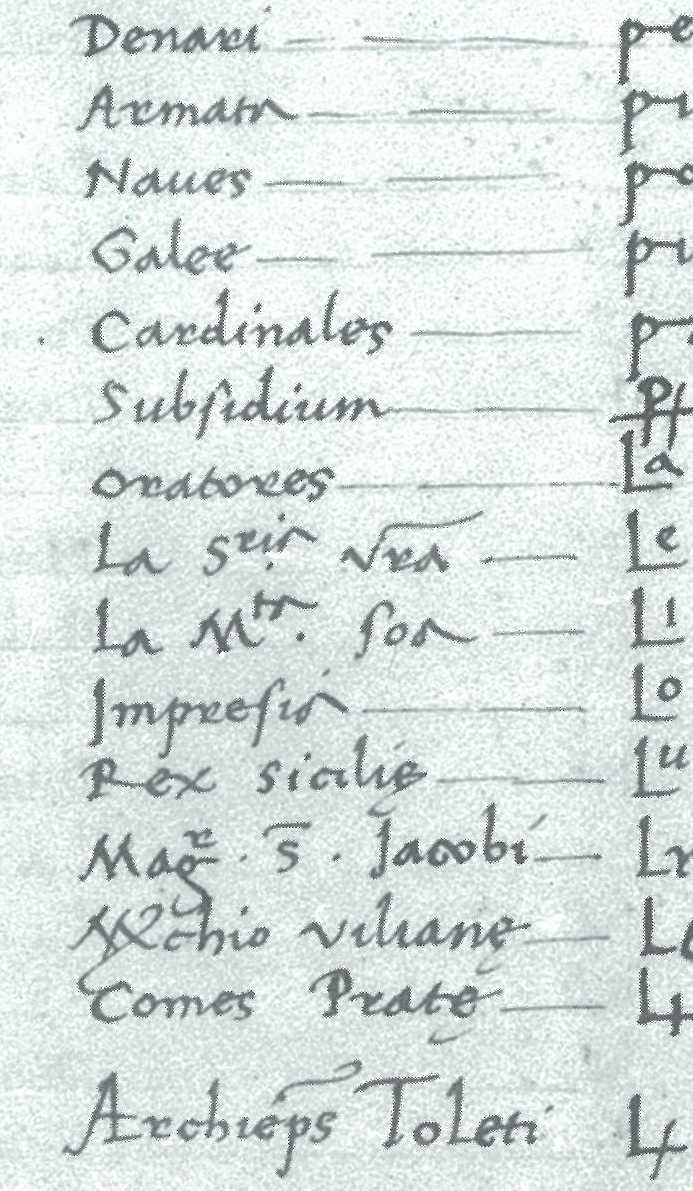 Denari pe
Armata pi
Naues po
Galee pu
Cardinales p
Subsidium
oratores La
La Sria vra Le
La Mta. soa Li
Impresia Lo
Rex sicilię Lu
Magr. s̄. Jacobi Lr
Mchio vilianę L
Comes Pratę L
Archiep̄s Toleti L